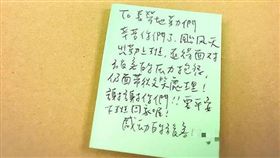 To 長榮地勤們
辛苦你們了，颱風天
出勤上班，還得面對
很多的壓力抱怨，
仍面帶微笑處理！
謝謝你們！！要平安
下班回家喔！
感動的旅客